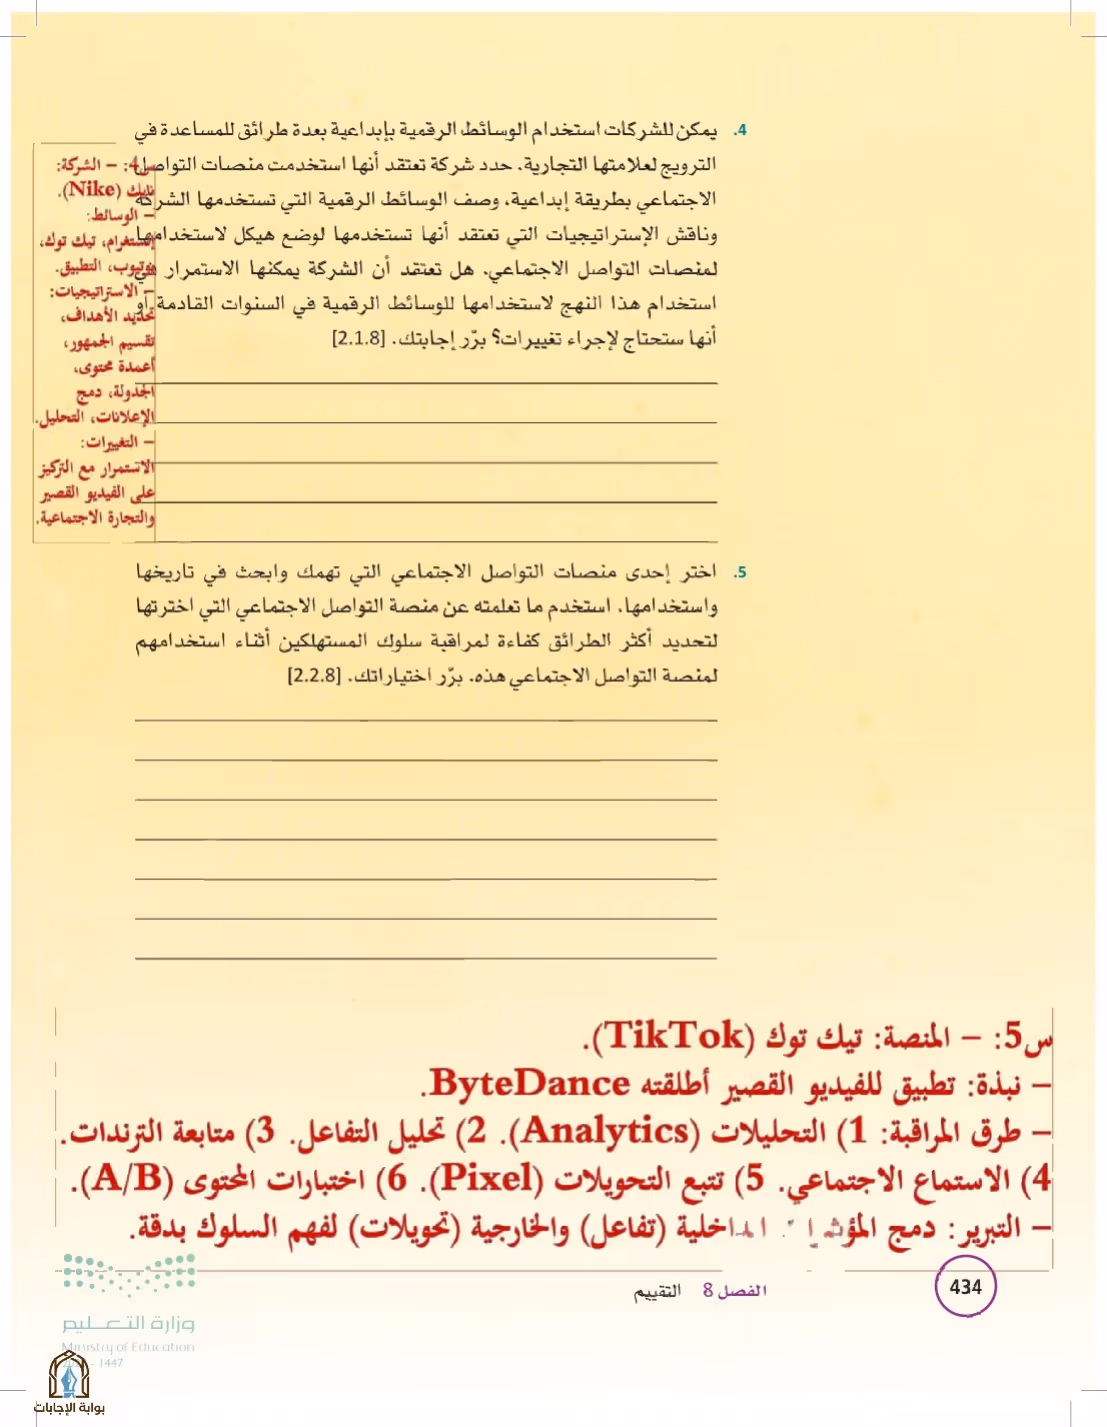 4. يمكن للشركات استخدام الوسائط الرقمية بإبداعية بعدة طرائق للمساعدة في
الترويج لعلامتها التجارية. حدد شركة تعتقد أنها استخدمت منصات التواصل
الاجتماعي بطريقة إبداعية، وصف الوسائط الرقمية التي تستخدمها الشركة
وناقش الإستراتيجيات التي تعتقد أنها تستخدمها لوضع هيكل لاستخدامها
لمنصات التواصل الاجتماعي. هل تعتقد أن الشركة يمكنها الاستمرار في
استخدام هذا النهج لاستخدامها للوسائط الرقمية في السنوات القادمة أو
أنها ستحتاج لإجراء تغييرات؟ برّر إجابتك. [2.1.8]
س4: – الشركة:
نايك (Nike).
– الوسائط:
إنستغرام، تيك توك،
يوتيوب، التطبيق.
– الاستراتيجيات:
تحديد الأهداف،
تقسيم الجمهور،
أعمدة محتوى،
الجدولة، دمج
الإعلانات، التحليل.
– التغييرات:
الاستمرار مع التركيز
على الفيديو القصير
والتجارة الاجتماعية.
5. اختر إحدى منصات التواصل الاجتماعي التي تهمك وابحث في تاريخها
واستخدامها. استخدم ما تعلمته عن منصة التواصل الاجتماعي التي اخترتها
لتحديد أكثر الطرائق كفاءة لمراقبة سلوك المستهلكين أثناء استخدامهم
لمنصة التواصل الاجتماعي هذه. برّر اختياراتك. [2.2.8]
س5: – المنصة: تيك توك (TikTok).
– نبذة: تطبيق للفيديو القصير أطلقته ByteDance.
– طرق المراقبة: 1) التحليلات (Analytics). 2) تحليل التفاعل. 3) متابعة الترندات.
4) الاستماع الاجتماعي. 5) تتبع التحويلات (Pixel). 6) اختبارات المحتوى (A/B).
– التبرير: دمج المؤشرات الداخلية (تفاعل) والخارجية (تحويلات) لفهم السلوك بدقة.
434
الفصل 8 التقييم
وزارة التعليم
Ministry of Education
- 1447
بوابة الإجابات